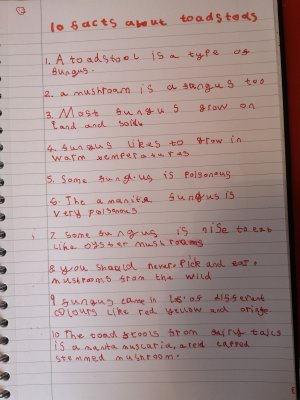 10 facts about toadstools
1. A toadstool is a type of
fungus.
2. a mushroom is a fungus too
3. Most fungus grow on
land and soil
4. fungus likes to grow in
warm temperatures
5. Some fungus is poisonous
6. The amanita fungus is
very poisonous
7 Some fungus is nise to eat
like oyster mushrooms
8 you should never pick and eat
mushrooms from the wild
9 fungus came in lots of different
colours like red yellow and oringe
10 The toadstools from fairy tails
is amanita muscaria, a red capped
stemmed mushroom.